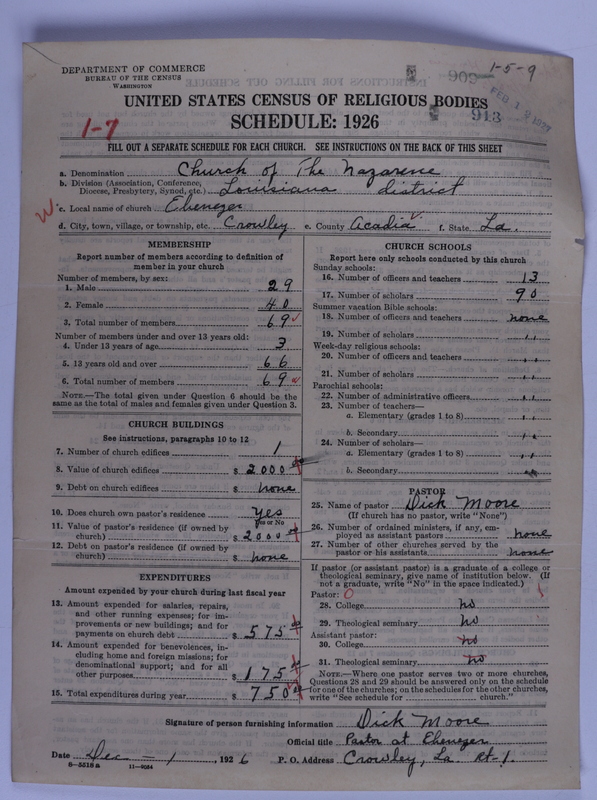 DEPARTMENT OF COMMERCE
BUREAU OF THE CENSUS
WASHINGTON
909
1-5-9
FEB 1 1927
913
UNITED STATES CENSUS OF RELIGIOUS BODIES
SCHEDULE: 1926
1-7
FILL OUT A SEPARATE SCHEDULE FOR EACH CHURCH. SEE INSTRUCTIONS ON THE BACK OF THIS SHEET
a. Denomination Church of The Nazarene
b. Division (Association, Conference, Diocese, Presbytery, Synod, etc.) Louisiana district
c. Local name of church Ebenezer
d. City, town, village, or township, etc. Crowley e. County Acadia f. State La.
MEMBERSHIP
Report number of members according to definition of
member in your church
Number of members, by sex:
1. Male 29
2. Female 40
3. Total number of members 69
Number of members under and over 13 years old:
4. Under 13 years of age 3
5. 13 years old and over 66
6. Total number of members 69
NOTE.—The total given under Question 6 should be
same as the total of males and females given under Question 3.
CHURCH BUILDINGS
See instructions, paragraphs 10 to 12
7. Number of church edifices 1
8. Value of church edifices $ 2000 00
9. Debt on church edifices $ none
10. Does church own pastor's residence Yes
Yes or No
11. Value of pastor's residence (if owned by
church) $ 2000 00
12. Debt on pastor's residence (if owned by
church) $ none
EXPENDITURES
Amount expended by your church during last fiscal year
13. Amount expended for salaries, repairs,
and other running expenses; for im-
provements or new buildings; and for
payments on church debt $ 575
14. Amount expended for benevolences, in-
cluding home and foreign missions; for
denominational support; and for all
other purposes $ 175
15. Total expenditures during year $ 750 00
CHURCH SCHOOLS
Report here only schools conducted by this church
Sunday schools:
16. Number of officers and teachers 13
17. Number of scholars 90
Summer vacation Bible schools:
18. Number of officers and teachers none
19. Number of scholars "
Week-day religious schools:
20. Number of officers and teachers "
21. Number of scholars "
Parochial schools:
22. Number of administrative officers "
23. Number of teachers—
a. Elementary (grades 1 to 8) "
b. Secondary "
24. Number of scholars—
a. Elementary (grades 1 to 8) "
b. Secondary "
PASTOR
25. Name of pastor Dick Moore
(If church has no pastor, write "None")
26. Number of ordained ministers, if any, em-
ployed as assistant pastors none
27. Number of other churches served by the
pastor or his assistants none
If pastor (or assistant pastor) is a graduate of a college or
theological seminary, give name of institution below. (If
not a graduate, write "No" in the space indicated.)
Pastor: 0
28. College no
29. Theological seminary no
Assistant pastor:
30. College no
31. Theological seminary no
NOTE.—Where one pastor serves two or more churches,
Questions 28 and 29 should be answered only on the schedule
for one of the churches; on the schedules for the other churches,
write "See schedule for church."
Signature of person furnishing information Dick Moore
Official title Pastor at Ebenezer
Date Dec - 1, 1926 P. O. Address Crowley, La. Rt-1.
8-5518a 11-9054